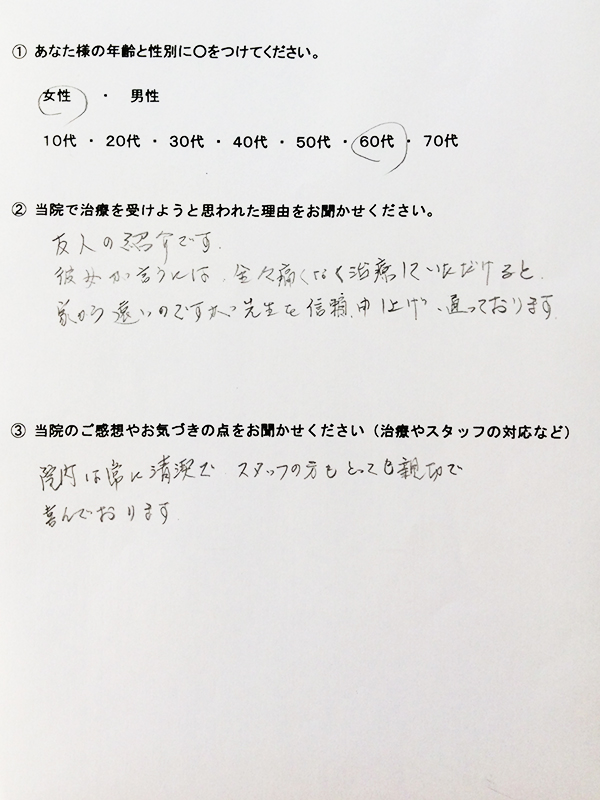 ① あなた様の年齢と性別に○をつけてください。
女性 ・ 男性
10代 ・ 20代 ・ 30代 ・ 40代 ・ 50代 ・ 60代 ・ 70代
② 当院で治療を受けようと思われた理由をお聞かせください。
友人の紹介です.
彼女が言うには、全々痛くなく治療していただけると.
家から遠いのですが先生を信頼申し上げ、通っております.
③ 当院のご感想やお気づきの点をお聞かせください（治療やスタッフの対応など）
院内は常に清潔で スタッフの方もとっても親切で
喜んでおります.